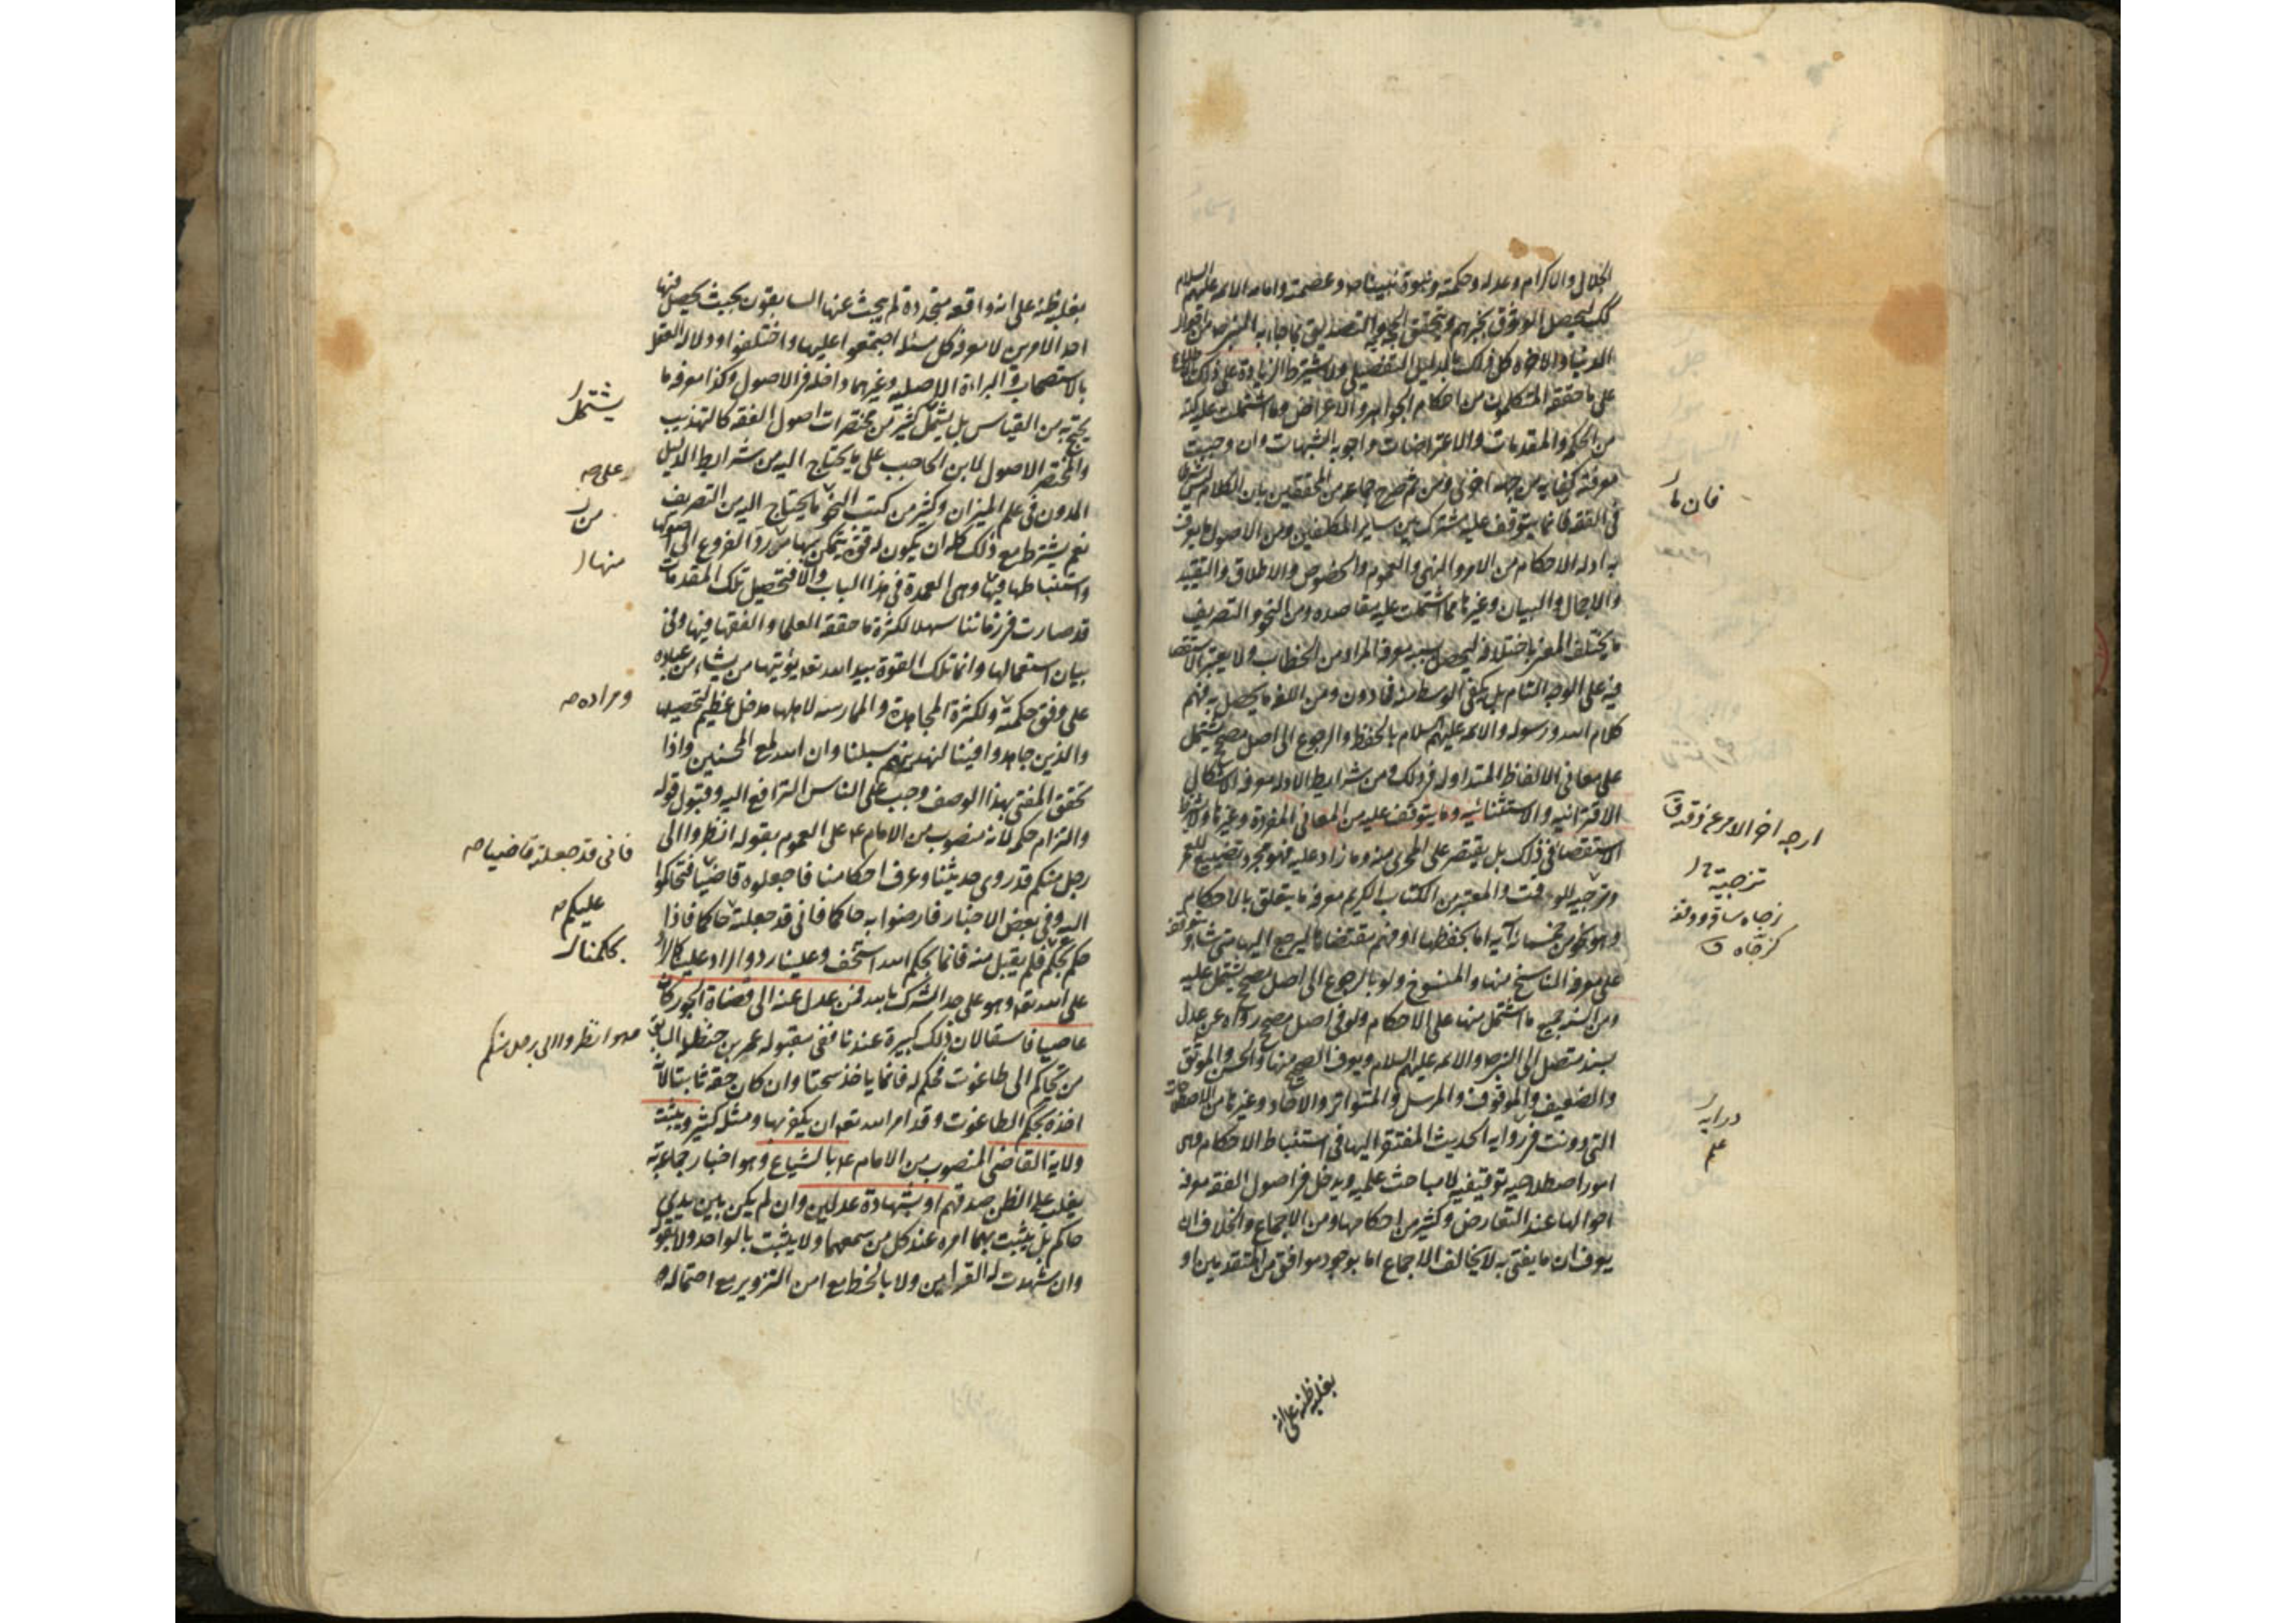 الجلال والاكرام وعدله وحكمته ونبوة نبينا ص وعصمته وامامة الائمة عليهم السلام
كك ليحصل الوثوق بخبرهم ويتحقق الحجة به والتصديق بما جاء به النبي ص من احوال
الدنيا والاخرة كل ذلك بالدليل التفصيلي ولا يشترط الزيادة على ذلك بالاطلاع
على ما حققه المتكلمون من احكام الجواهر والاعراض وما اشتملت عليه كتبه
من الحكمة والمقدمات والاعتراضات واجوبة الشبهات وان وجبت
معرفته كفاية من جهة اخرى ومن ثم صرح جماعة من المحققين بان الكلام ليس شرطا
في الفقه فانما يتوقف عليه مشترك بين ساير المكلفين ومن الاصول ما يعرف
به ادلة الاحكام من الامر والنهي والعموم والخصوص والاطلاق والتقييد
والاجمال والبيان وغيرها مما اشتملت عليه مقاصده ومن النحو والتصريف
ما يختلف المعنى باختلافه ليحصل بسببه معرفة المراد من الخطاب ولا يعتبر الاستقصاء
فيه على الوجه التام بل يكفي الوسط منه فما دون ومن اللغة ما يحصل به فهم
كلام الله ورسوله والائمة عليهم السلام بالحفظ والرجوع الى اصل مصحح يشتمل
على معاني الالفاظ المتداولة في ذلك ومن شرايط الادلة معرفة الاشكال
الاقترانية والاستثنائية وما يتوقف عليه من المعاني المفردة وغيرها ولا يشترط
الاستقصاء في ذلك بل يقتصر على المجزي منه وما زاد عليه فهو مجرد تضييع للعمر
وترجية للوقت والمعتبر من الكتاب الكريم معرفة ما يتعلق بالاحكام
وهو نحو من خمسمائة آية اما بحفظها او فهم مقتضاها ليرجع اليها متى شاء ويتوقف
على معرفة الناسخ منها والمنسوخ ولو بالرجوع الى اصل مصحح يشتمل عليه
ومن السنة جميع ما اشتمل منها على الاحكام ولو في اصل مصحح رواه عن عدل
بسند متصل الى النبي ص والائمة عليهم السلام ويعرف الصحيح منها والحسن والموثق
والضعيف والموقوف والمرسل والمتواتر والاحاد وغيرها من الاصطلاحات
التي دونت في رواية الحديث المفتقر اليها في استنباط الاحكام وهي
امور اصطلاحية توقيفية لا مباحث علمية ويدخل في اصول الفقه معرفة
احوالها عند التعارض وكثير من احكامها ومن الاجماع والخلاف ان
يعرف ان ما يفتي به لا يخالف الاجماع اما بوجود موافق من المتقدمين او
بغلبة ظنه على انه
فان ما
ترجية
كزجاه ق
دراية
علم
بغلبة ظنه على انه واقعة متجددة لم يبحث عنها السابقون بحيث يحصل فيها
احد الامرين لا معرفة كل مسئلة اجتمعوا عليها واختلفوا ودلالة العقل
بالاستصحاب والبراءة الاصلية وغيرهما داخلة في الاصول وكذا معرفة ما
يحتج به من القياس بل يشتمل كثير من مختصرات اصول الفقه كالتهذيب
والمختصر الاصول لابن الحاجب على ما يحتاج اليه من شرايط الدليل
المدون في علم الميزان وكثير من كتب النحو ما يحتاج اليه من التصريف
نعم يشترط مع ذلك كله ان يكون له قوة يتمكن بها من رد الفروع الى اصولها
واستنباطها فيها وهي العمدة في هذا الباب والا فتحصيل تلك المقدمات
قد صارت في زماننا سهلا لكثرة ما حققه العلماء والفقهاء فيها وفي
بيان استعمالها وانما تلك القوة بيد الله تعه يؤتيها من يشاء من عباده
على وفق حكمته ولكثرة المجاهدة والممارسة لاهلها مدخل عظيم لتحصيلها
والذين جاهدوا فينا لنهدينهم سبلنا وان الله لمع المحسنين واذا
تحقق المفتي بهذا الوصف وجب على الناس الترافع اليه وقبول قوله
والتزام حكمه لانه منصوب من الامام ع على العموم بقوله انظروا الى
رجل منكم قد روى حديثنا وعرف احكامنا فاجعلوه قاضيا فتحاكموا
اليه وفي بعض الاخبار فارضوا به حاكما فاني قد جعلته حاكما فاذا
حكم بحكم فلم يقبل منه فانما بحكم الله استخف وعلينا رد والراد علينا كالراد
على الله تعه وهو على حد الشرك بالله فمن عدل عنه الى قضاة الجور كان
عاصيا فاسقا لان ذلك كبيرة عندنا ففي مقبولة عمر بن حنظلة السابقة
من تحاكم الى طاغوت فحكم له فانما ياخذ سحتا وان كان حقه ثابتا لانه
اخذه بحكم الطاغوت وقد امر الله تعه ان يكفر بها ومثله كثير ويثبت
ولاية القاضي المنصوب من الامام ع بالشياع وهو اخبار جماعة به
يغلب على الظن صدقهم او بشهادة عدلين وان لم يكن بين يدي
حاكم بل يثبت بهما امره عند كل من سمعهما ولا يثبت بالواحد ولا بقوله
وان شهدت له القراين ولا بالخط مع امن التزوير مع احتماله
يشتمل
على صح
من
منها
ومراده صح
فاني قد جعلته قاضيا صح
عليكم صح
بحكمنا
وهو انظروا الى رجل منكم